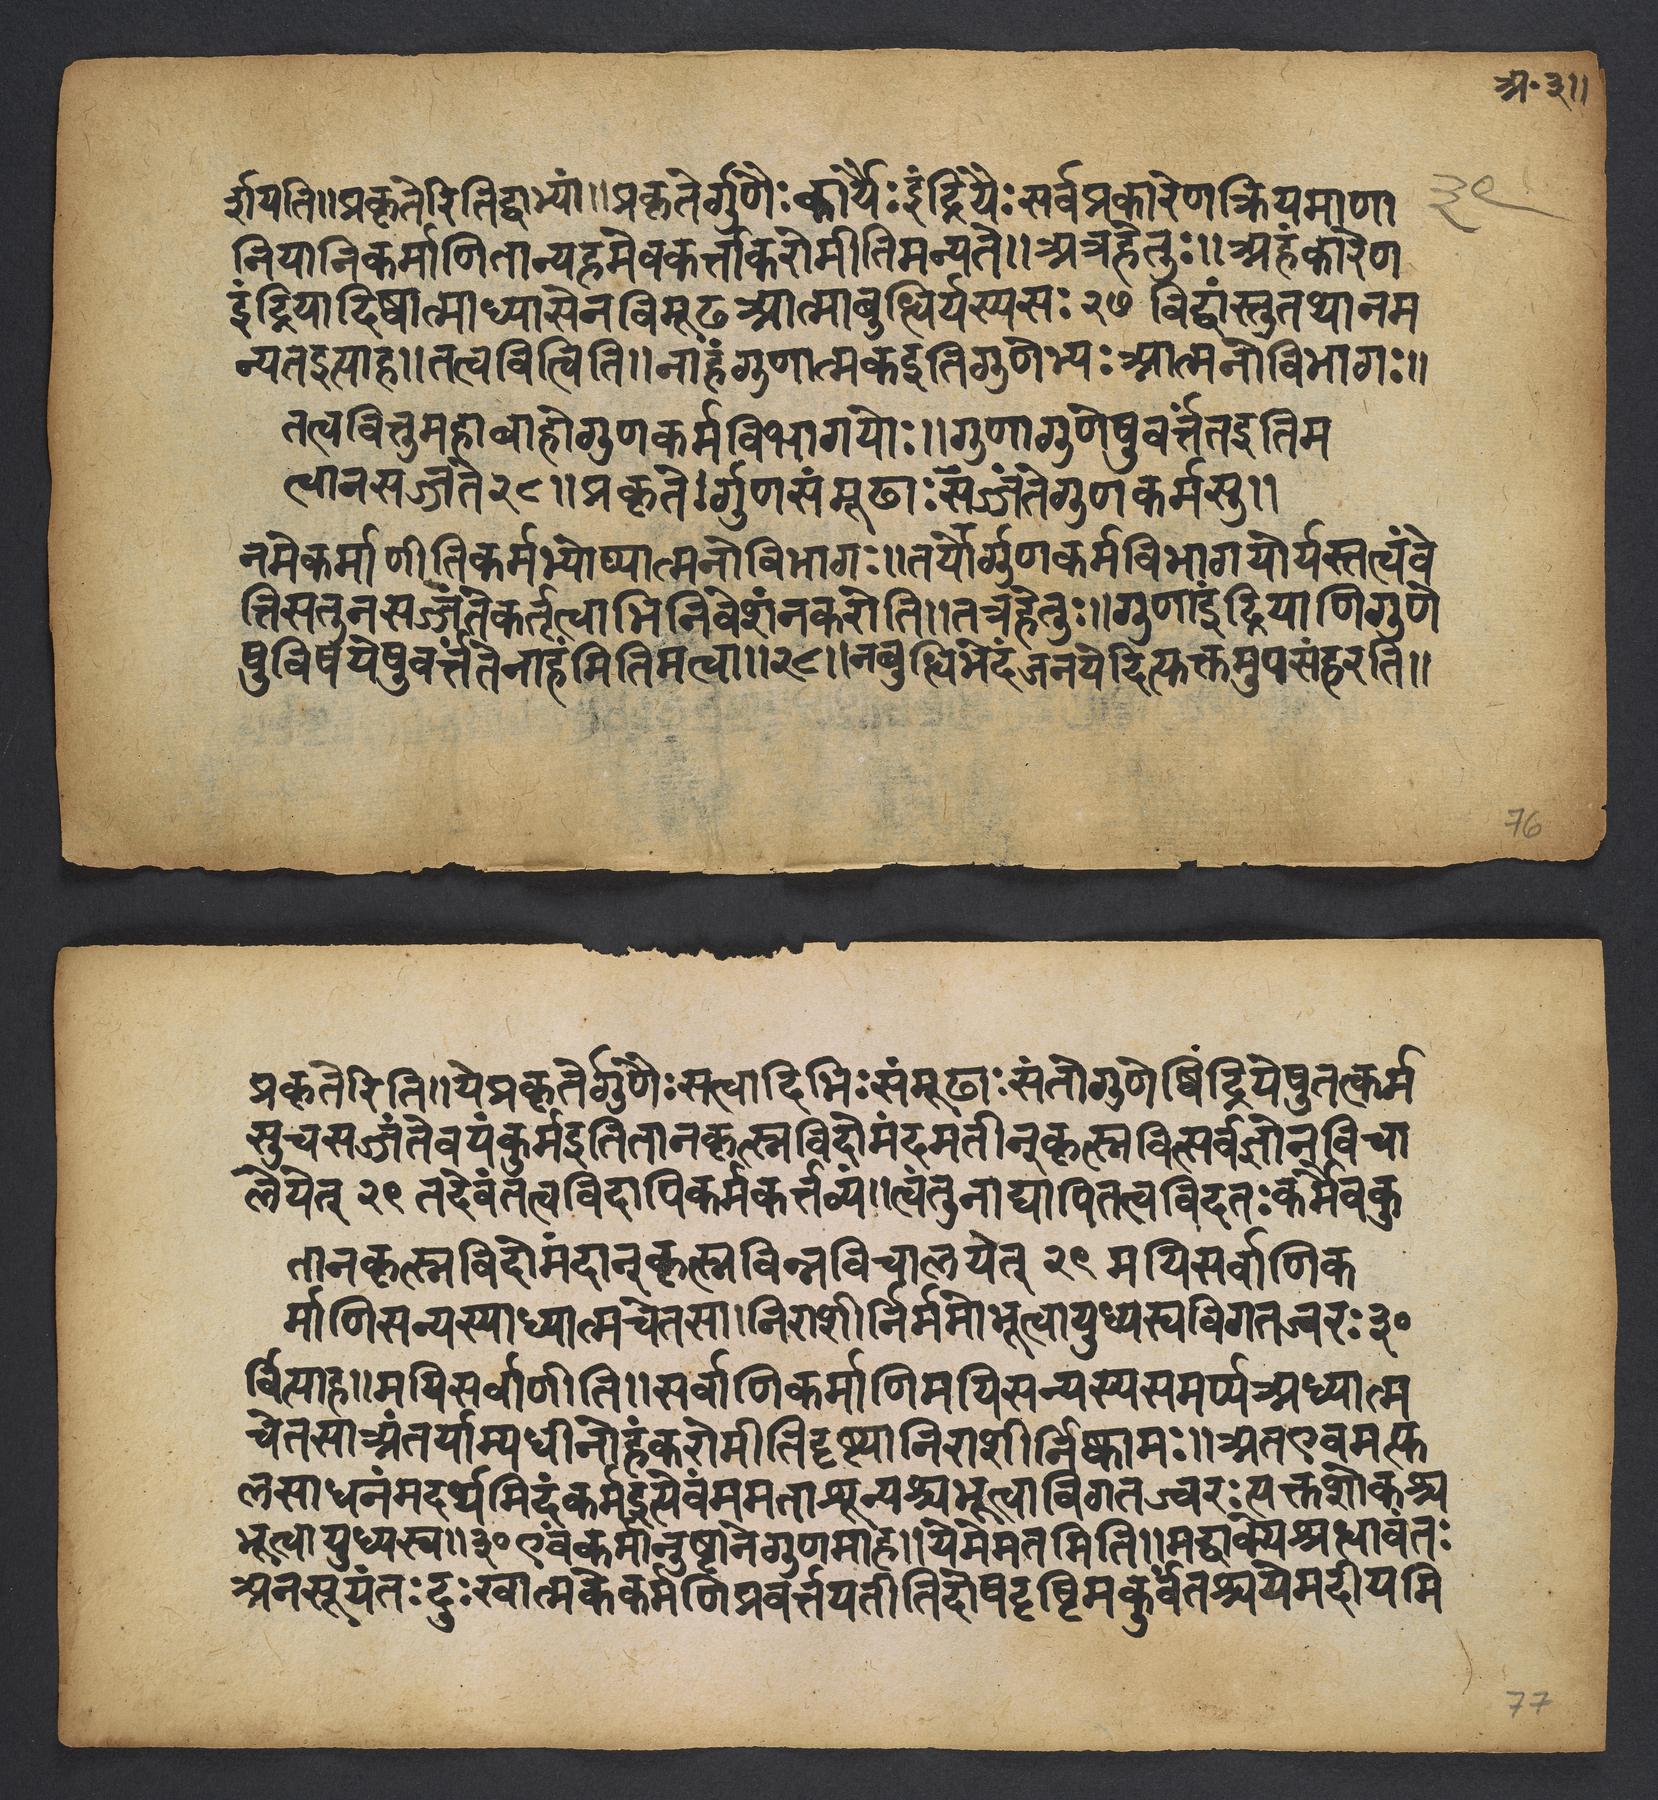 अ॰ ३॥
र्शयति॥प्रकृतेरितिद्वाभ्यां॥प्रकृतेर्गुणैः कार्यैः इंद्रियैः सर्वप्रकारेणक्रियमाणा
३९
नियानिकर्माणितान्यहमेवकर्त्ताकरोमीतिमन्यते॥अत्रहेतुः॥अहंकारेण
इंद्रियादिष्वात्माध्यासेनविमूढआत्माबुद्धिर्यस्यसः २७ विद्वांस्तुतथानम
न्यतइत्याह॥तत्त्ववित्त्विति॥नाहंगुणात्मकइतिगुणेभ्यः आत्मनोविभागः॥
तत्त्ववित्तुमहाबाहोगुणकर्मविभागयोः॥गुणागुणेषुवर्त्ततइतिम
त्वानसज्जते२८॥प्रकृतेर्गुणसंमूढाः सज्जंतेगुणकर्मसु॥
नमेकर्माणीतिकर्मभ्योप्यात्मनोविभागः॥तयोर्गुणकर्मविभागयोर्यस्तत्वंवे
त्तिसतुनसज्जतेकर्तृत्वाभिनिवेशंनकरोति॥तत्रहेतुः॥गुणाइंद्रियाणिगुणे
षुविषयेषुवर्त्ततेनाहमितिमत्वा॥२८॥नबुद्धिभेदंजनयेदित्युक्तमुपसंहरति॥
76
प्रकृतेरिति॥येप्रकृतेर्गुणैः सत्वादिभिः संमूढाः संतोगुणेष्विंद्रियेषुतत्कर्म
सुचसज्जंतेवयंकुर्मइतितानकृत्स्नविदोमंदमतीन्कृत्स्नवित्सर्वज्ञोनविचा
लयेत् २९ तदेवंतत्त्वविदापिकर्मकर्त्तव्यं॥त्वंतुनाद्यापितत्त्वविदतः कर्मैवकु
तानकृत्स्नविदोमंदान्कृत्स्नविन्नविचालयेत् २९ मयिसर्वाणिक
र्माणिसन्यस्याध्यात्मचेतसा।निराशीर्निर्ममोभूत्वायुध्यस्वविगतज्वरः ३०
र्वित्याह॥मयिसर्वाणीति॥सर्वाणिकर्माणिमयिसन्यस्यसमर्प्यअध्यात्म
चेतसाअंतर्याम्यधीनोहंकरोमीतिदृष्ट्यानिराशीर्निष्कामः॥अतएवमत्फ
लसाधनंमदर्थमिदंकर्मइत्येवंममताशून्यश्चभूत्वाविगतज्वरः त्यक्तशोकश्च
भूत्वायुध्यस्व॥३० एवंकर्मानुष्ठानेगुणमाह॥येमेमतमिति॥मद्वाक्येश्रद्धावंतः
अनसूयंतः दुःखात्मकेकर्मणिप्रवर्त्तयतीतिदोषदृष्टिमकुर्वंतश्चयेमदीयमि
77